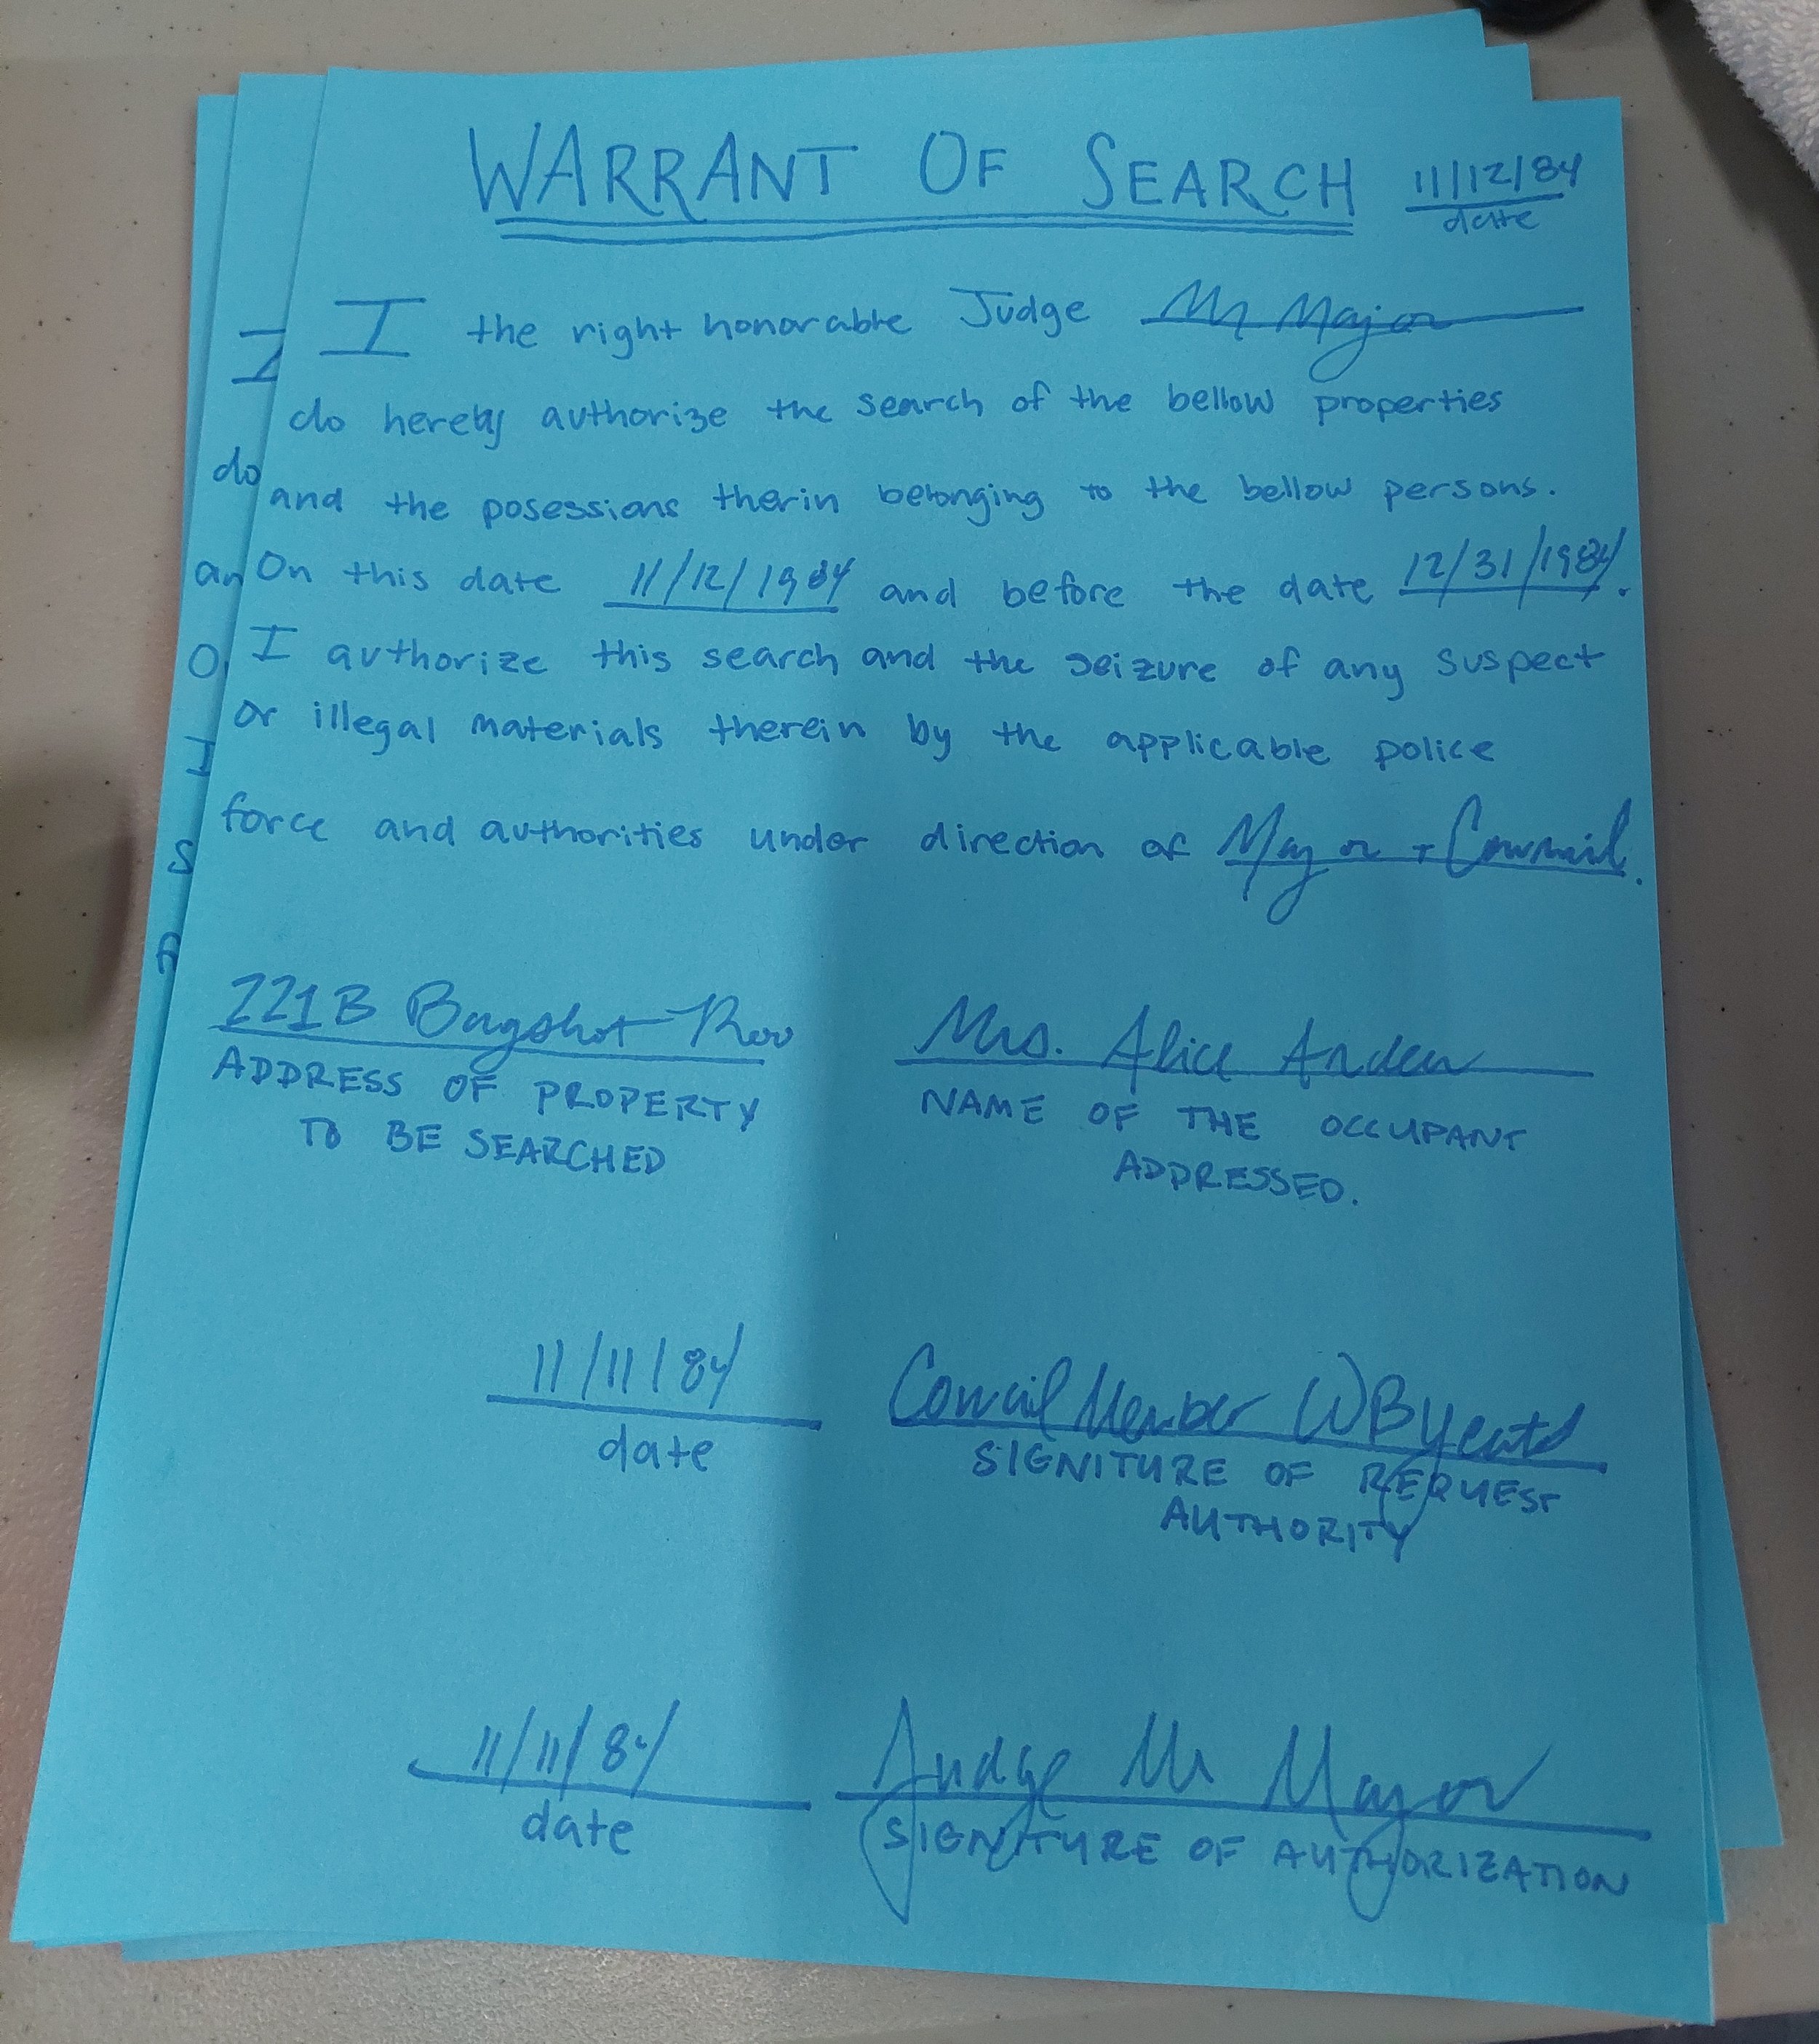 WARRANT OF SEARCH 11/12/84
date
I the right honorable Judge Mr Major
do hereby authorize the search of the bellow properties
and the posessions therin belonging to the bellow persons.
On this date 11/12/1984 and before the date 12/31/1984.
I authorize this search and the seizure of any suspect
or illegal materials therein by the applicable police
force and authorities under direction of Mayor + Council.
221B Bagshot Row
ADDRESS OF PROPERTY
TO BE SEARCHED
Mrs. Alice Arden
NAME OF THE OCCUPANT
ADDRESSED.
11/11/84
date
Council Member WB Yeats
SIGNITURE OF REQUEST
AUTHORITY
11/11/84
date
Judge Mr Mayor
SIGNITURE OF AUTHORIZATION
I
do
an
O
I
S